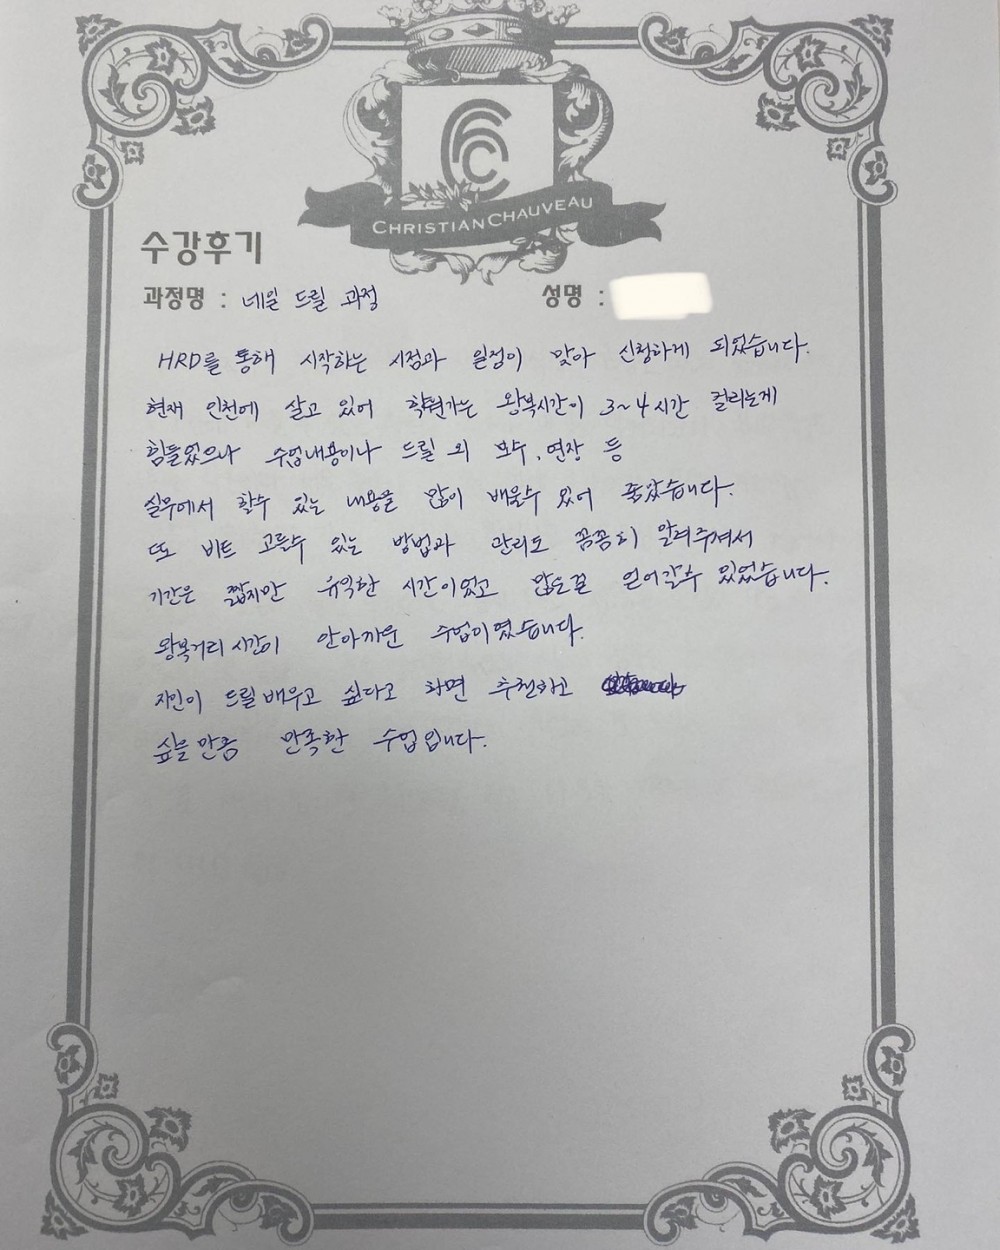 CHRISTIAN CHAUVEAU
수강후기
과정명 : 네일 드릴 과정 성명 :
HRD를 통해 시작하는 시점과 일정이 맞아 신청하게 되었습니다.
현재 인천에 살고 있어 학원가는 왕복시간이 3~4시간 걸리는게
힘들었으나 수업내용이나 드릴 외 보수, 연장 등
실무에서 할수 있는 내용을 많이 배울수 있어 좋았습니다.
또 비트 고를수 있는 방법과 관리도 꼼꼼히 알려주셔서
기간은 짧지만 유익한 시간이었고 많은걸 얻어갈수 있었습니다.
왕복거리 시간이 안아까운 수업이였습니다.
지인이 드릴 배우고 싶다고 하면 추천하고
싶을만큼 만족한 수업입니다.